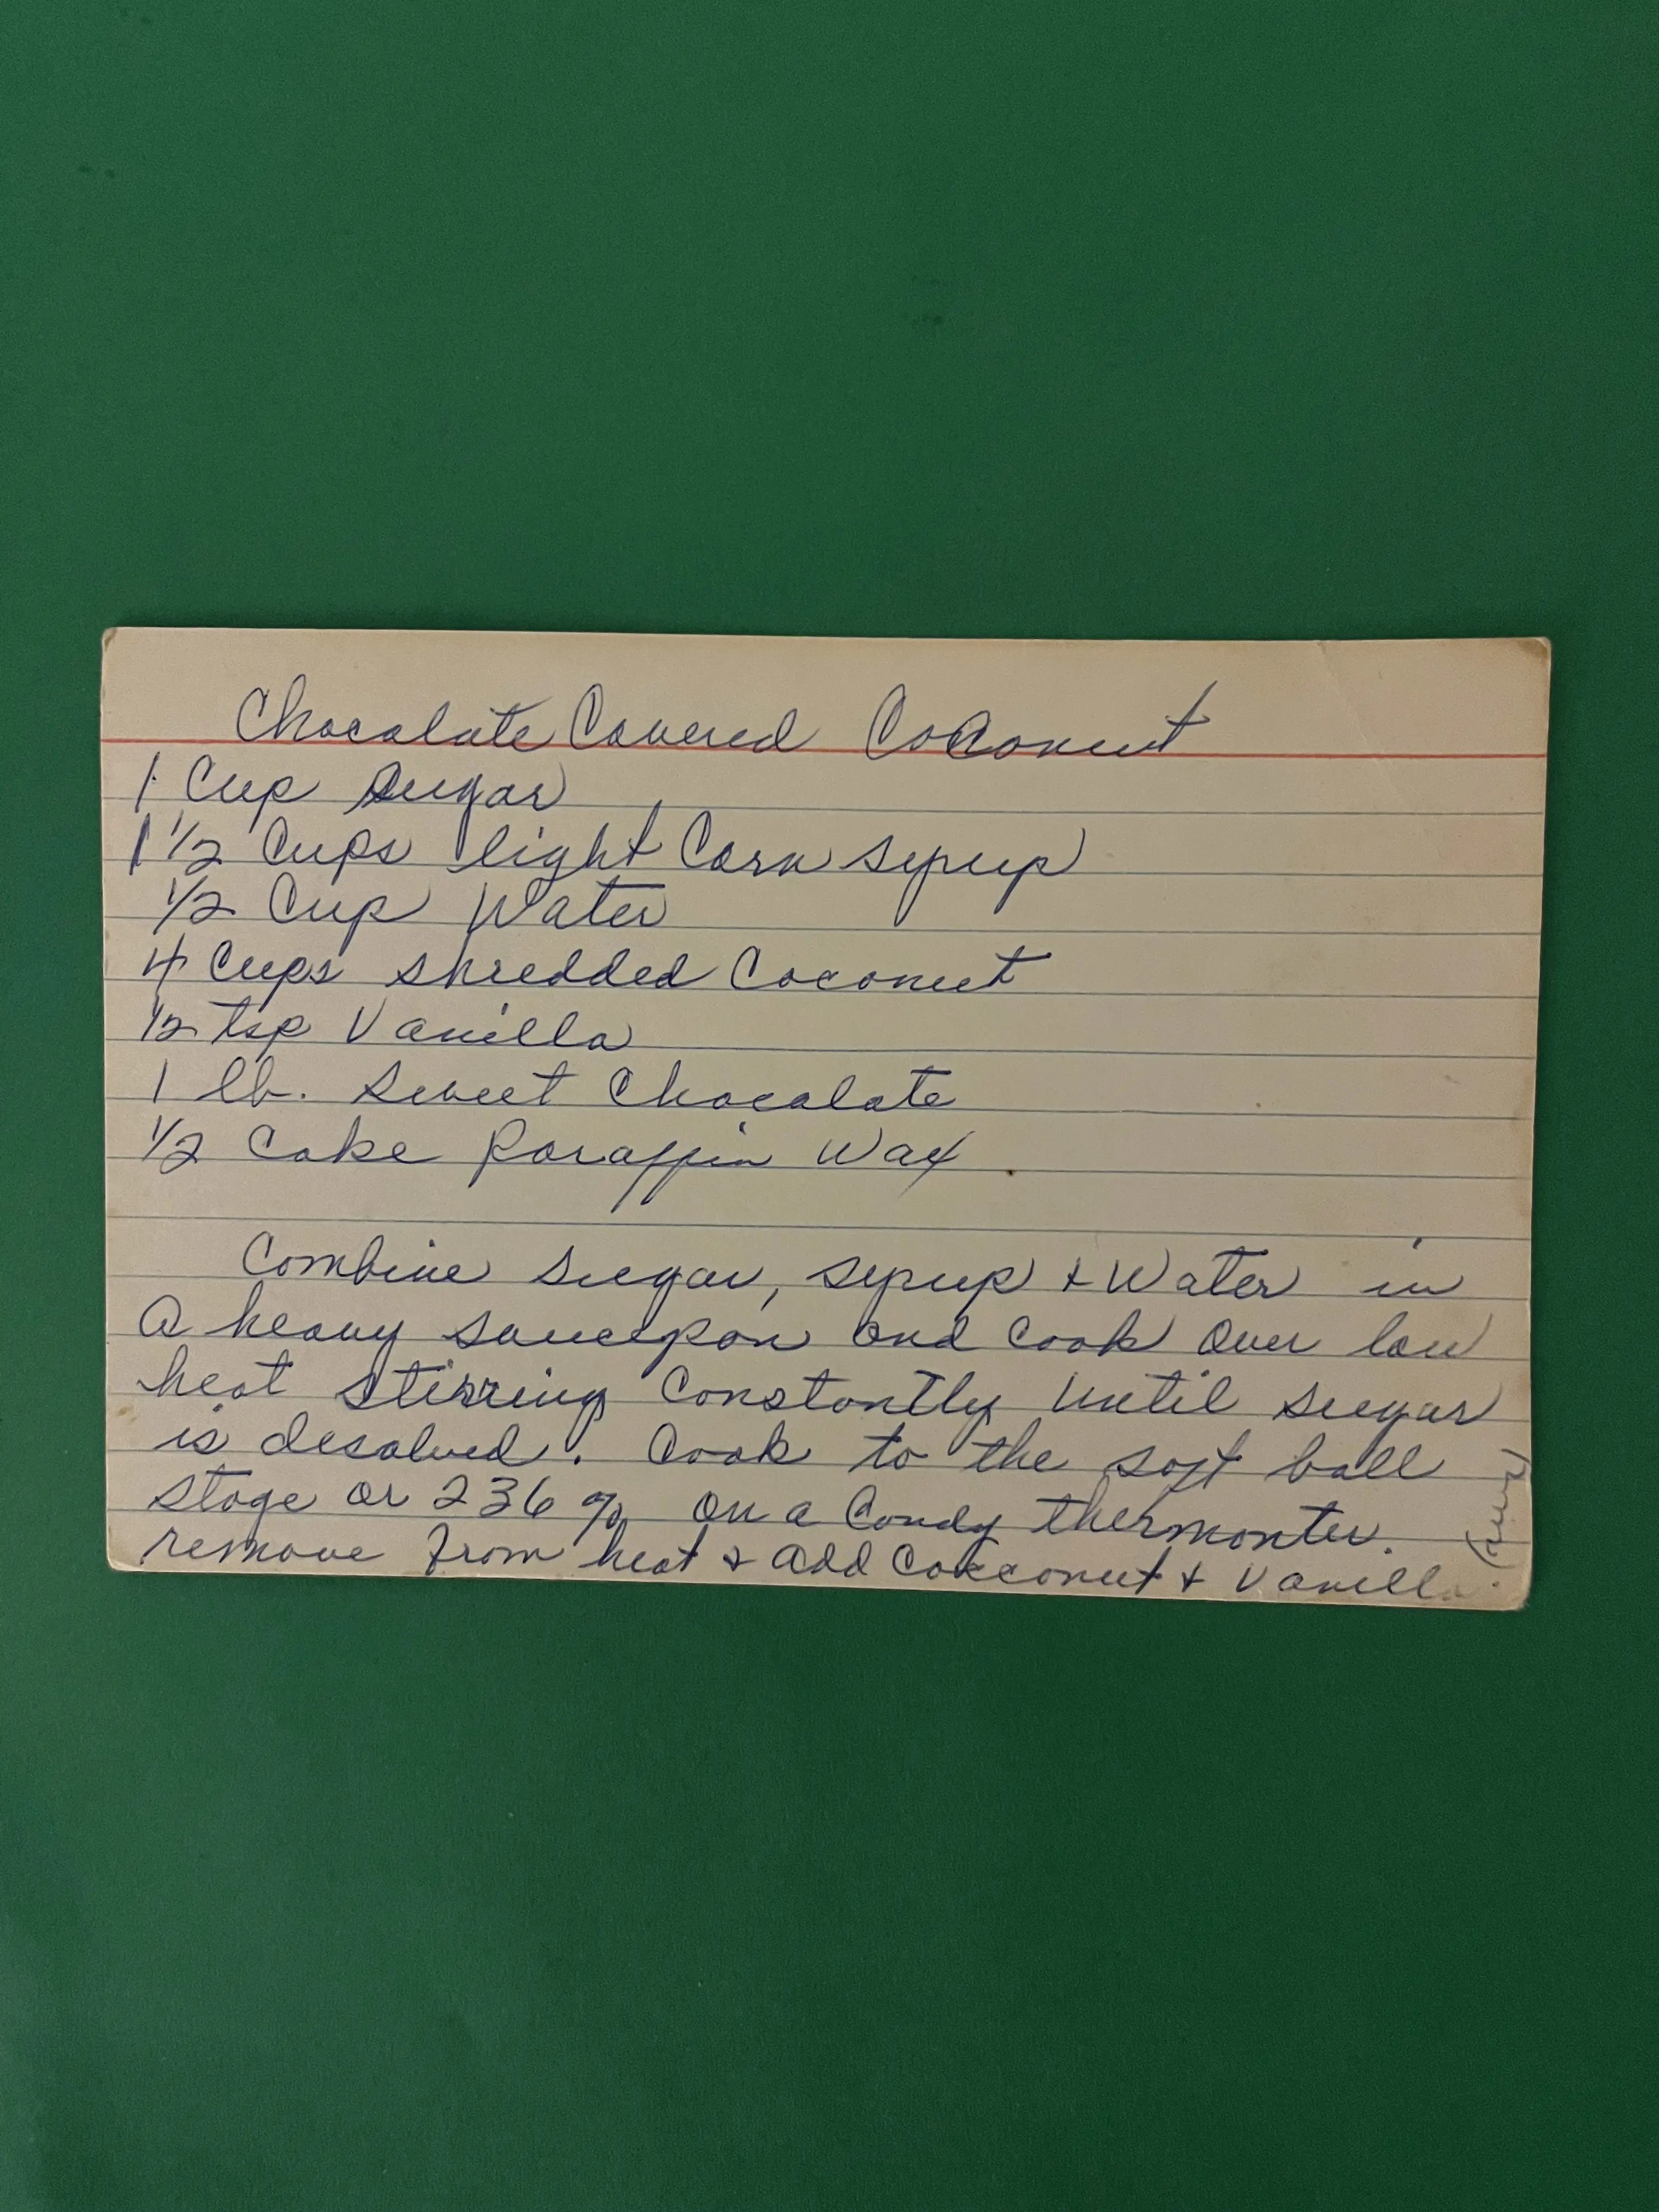 Chocolate Covered Coconut
1 Cup Sugar
1 1/2 Cups light Corn syrup
1/2 Cup Water
4 Cups shredded Coconut
1/2 tsp Vanilla
1 lb. Sweet Chocolate
1/2 Cake Paraffin Wax.
Combine Sugar, syrup + Water in
a heavy saucepan and cook over low
heat stirring Constantly until sugar
is desolved. Cook to the soft ball
stage or 236 % on a Candy thermonter.
remove from heat & add Cokconut + Vanilla.